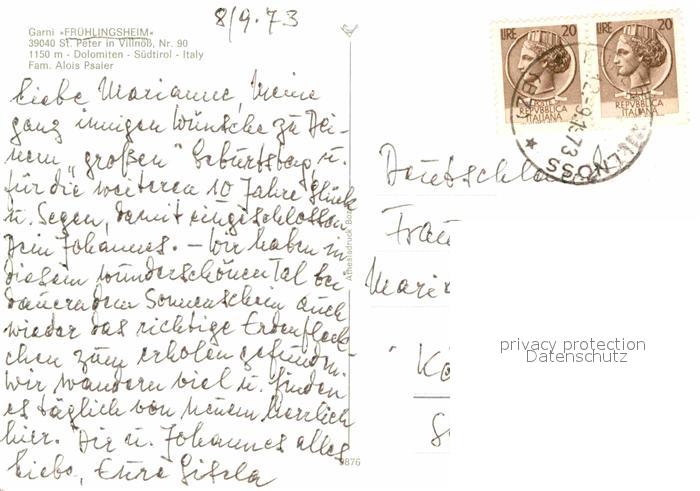 8/9.73
Garni »FRÜHLINGSHEIM«
39040 St. Peter in Villnöß, Nr. 90
1150 m - Dolomiten - Südtirol - Italy
Fam. Alois Psaier
Liebe Marianne, Meine
ganz innigen Wünsche zu Dei-
nem "großen" Geburtstag, u.
für die weiteren 10 Jahre Glück
u. Segen, damit eingeschlossen
Dein Johannes. – Wir haben in
diesem wunderschönen Tal bei
dauerndem Sonnenschein auch
wieder das richtige Erdenfleck-
chen zum erholen gefunden.
Wir wandern viel u. finden
es täglich von neuem herrlich
hier. Dir u. Johannes alles
Liebe, Eure Gisela
LIRE 20
POSTE
REPVBBLICA
ITALIANA
LIRE 20
REPVBBLICA
ITALIANA
VILLNÖSS
Deutschla
Frau
privacy protection
Datenschutz
9876